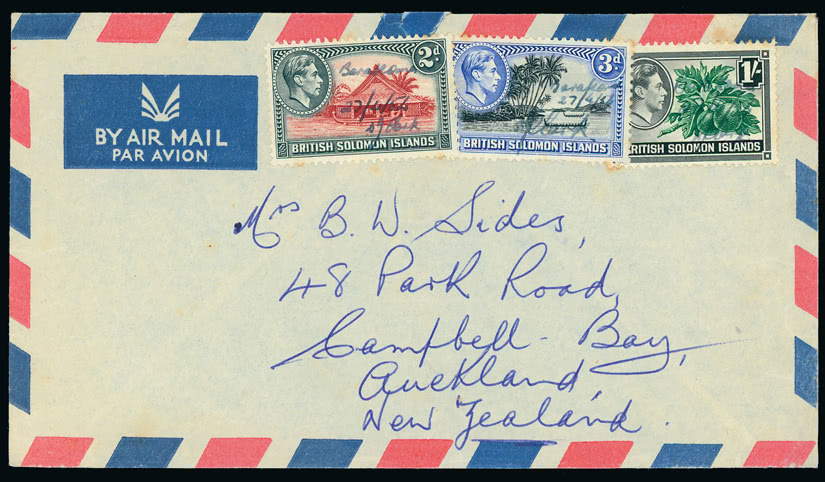 2d
BRITISH SOLOMON ISLANDS
3d
BRITISH SOLOMON ISLANDS
1/-
RITISH SOLOMON ISLANDS
BY AIR MAIL
PAR AVION
Mrs B. W. Sides,
48 Park Road,
Campbell-Bay,
Auckland,
New Zealand.